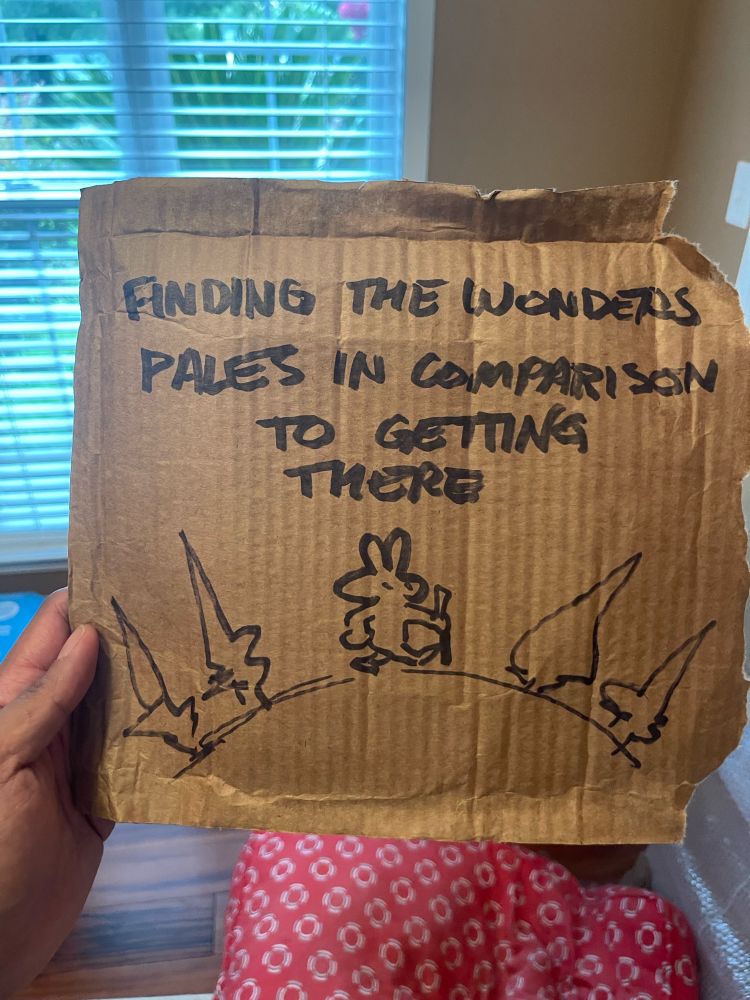 FINDING THE WONDERS
PALES IN COMPARISON
TO GETTING
THERE